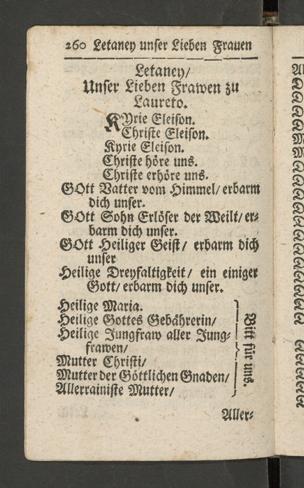 260 Letaney unser Lieben Frauen
Letaney/
Unser Lieben Frawen zu
Laureto.
KYrie Eleison.
Christe Eleison.
Kyrie Eleison.
Christe höre uns.
Christe erhöre uns.
GOtt Vatter vom Himmel/ erbarm
dich unser.
GOtt Sohn Erlöser der Weilt/ er-
barm dich unser.
GOtt Heiliger Geist/ erbarm dich
unser
Heilige Dreyfaltigkeit/ ein einiger
Gott/ erbarm dich unser.
Heilige Maria.
Heilige Gottes Gebährerin/
Heilige Jungfraw aller Jung-
frawen/
Mutter Christi/
Mutter der Göttlichen Gnaden/
Allerrainiste Mutter/
Bitt für uns.
Aller-